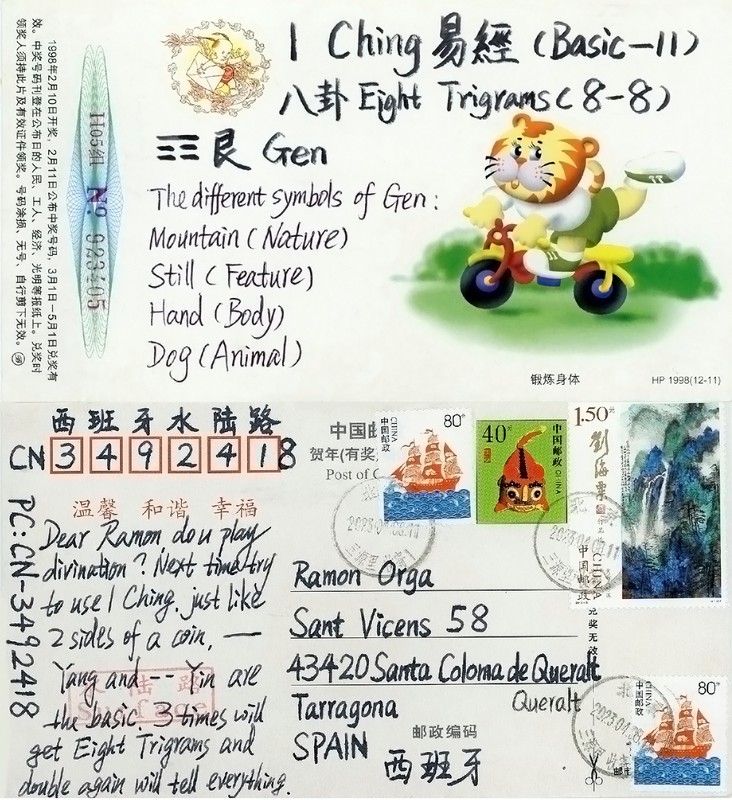 1998年2月10日开奖，2月11日公布中奖号码，3月1日—5月1日兑奖有
效。中奖号码刊登在公布日的人民、工人、经济、光明等报纸上。兑奖时
领奖人须持此片及有效证件领奖。号码涂损、无号、自行剪下无效。
1105组 No. 023405
I Ching 易經 (Basic-11)
八卦 Eight Trigrams (8-8)
☶ 艮 Gen
The different symbols of Gen:
Mountain (Nature)
Still (Feature)
Hand (Body)
Dog (Animal)
锻炼身体
HP 1998(12-11)
西班牙水陆路
CN 3492418
PC:CN-3492418
温馨 和谐 幸福
Dear Ramon do u play
divination? Next time try
to use I Ching, just like
2 sides of a coin, —
Yang and -- Yin are
the basic. 3 times will
get Eight Trigrams and
double again will tell everything.
水陆路
Surface
中国邮
贺年(有奖
Post of C
80分
中国邮政
CHINA
40分
中国邮政
CHINA
1.50元
劉海粟
中国邮政
CHINA
2023.04.03.11
兑奖无效
Ramon Orga
Sant Vicens 58
43420 Santa Coloma de Queralt
Queralt
Tarragona
SPAIN 西班牙
邮政编码
80分
中国邮政
CHINA